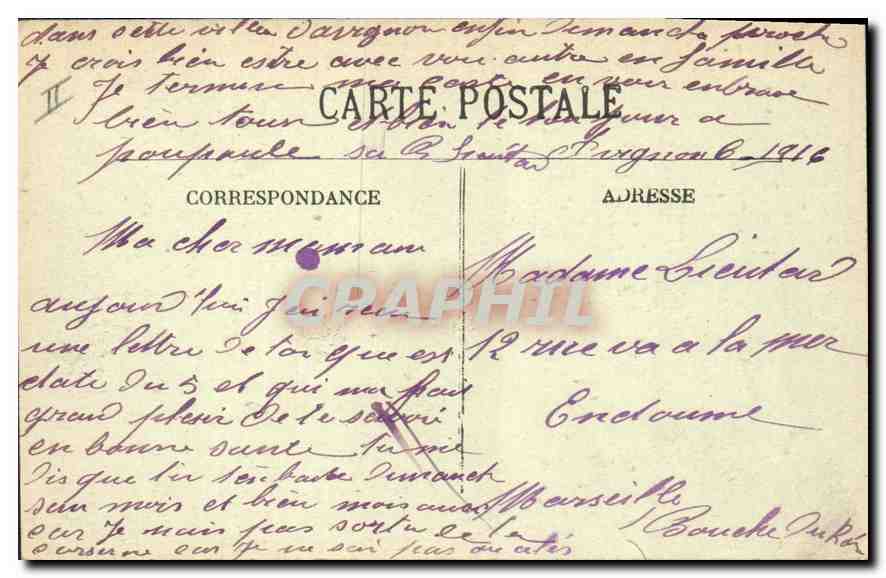 dans sette ville davignon enfin dimanche proche
Je crois bien estre avec vou autre en famille
II
Je termine ma carte en vous enbrase
CARTE POSTALE
bien tous et bien le bonjour a
poupoule Avignon 6 1916
CORRESPONDANCE
ADRESSE
Ma cher maman
aujourd'hui J'ai reçu
une lettre de toi que est
date du 5 et qui ma fait
grand plesir de te savoir
en bonne sante tu me
dis que dimanch
san mois et bien moi aussi
car Je nais pas sorti de la
caserne car Je ne sai pas ou
Madame Lieutar
12 rue va a la mer
Endoume
Marseille
Bouche du Rône
CPAPHIL